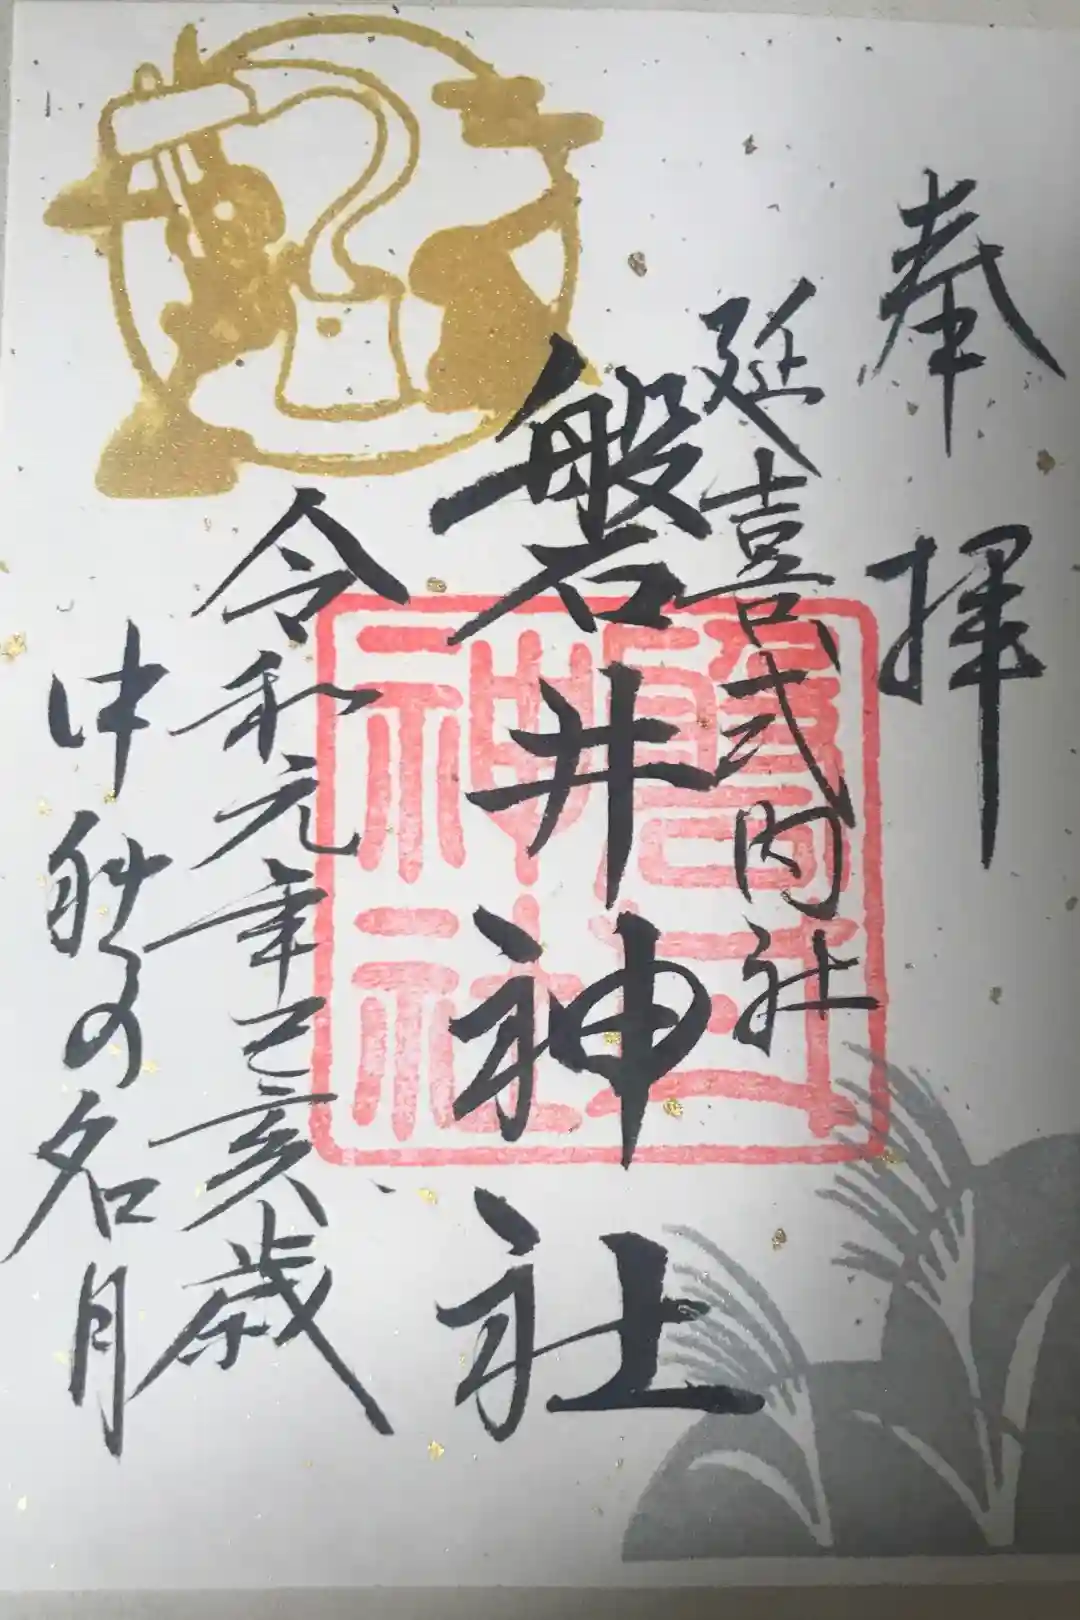 奉拝
延喜式内社
磐井神社
磐井神社
令和元年己亥歳
中秋の名月